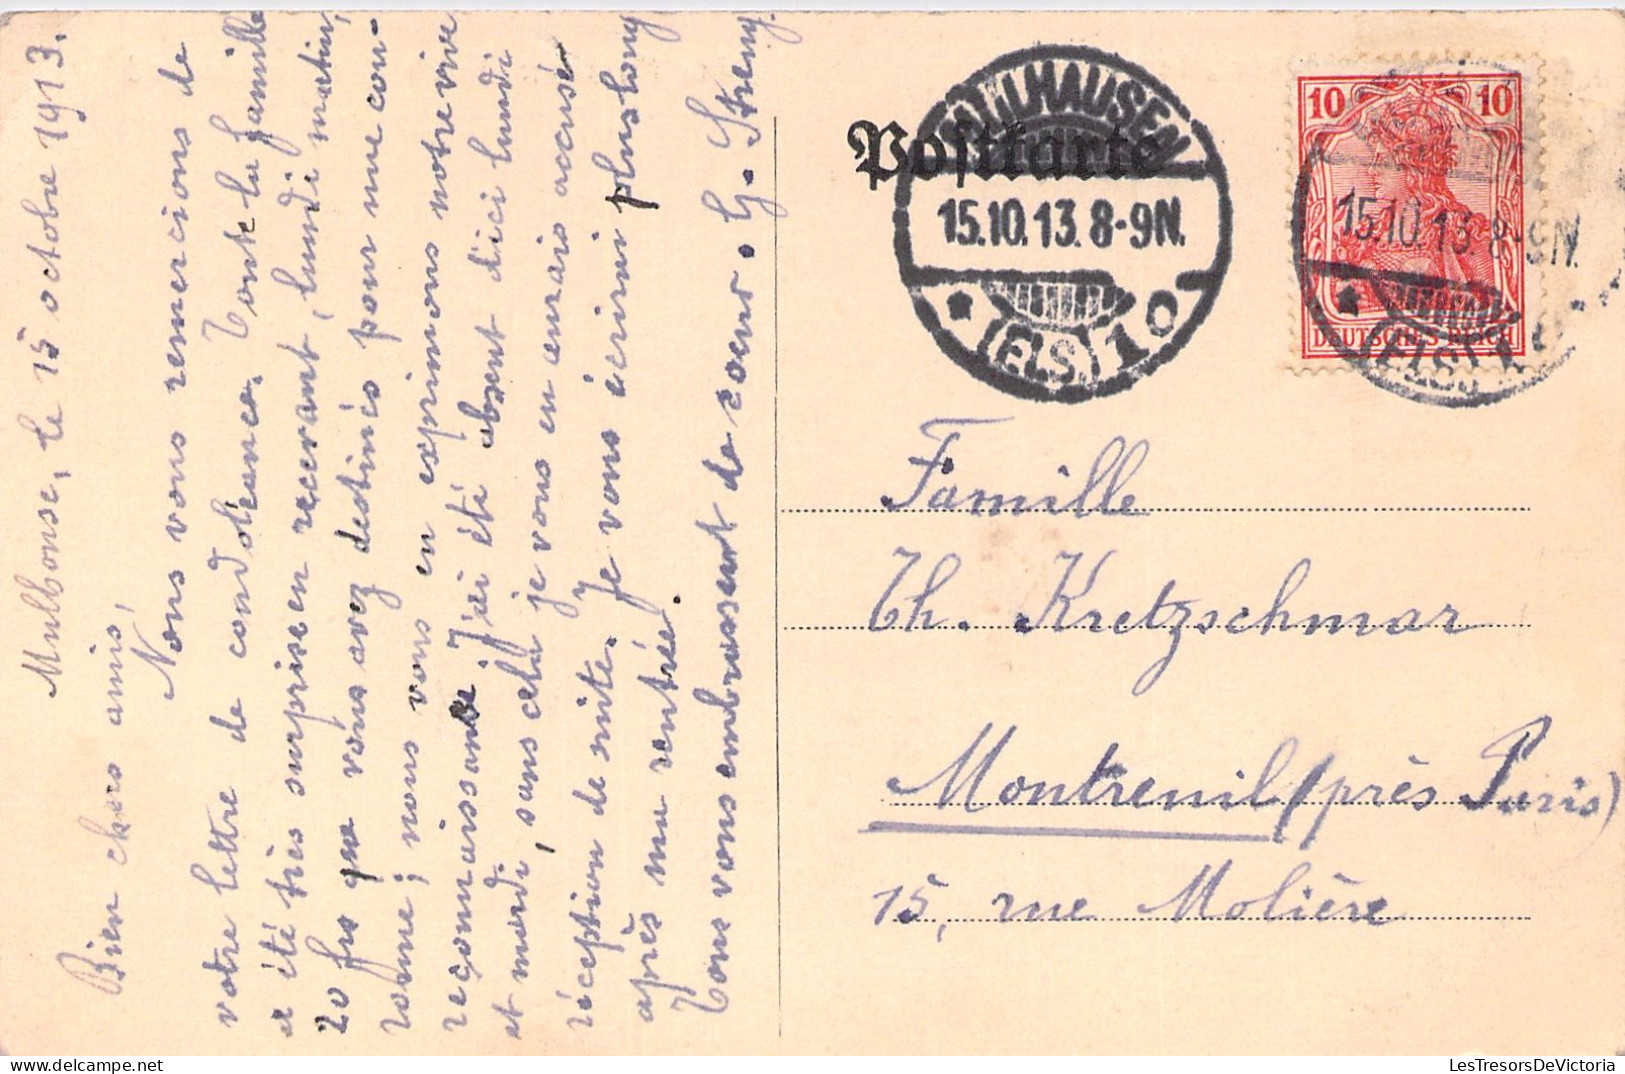 Mulhouse, le 15 octobre 1913.
Bien chers amis,
Nous vous remercions de
votre lettre de condoléance. Toute la famille
a été très surprise en recevant, lundi matin,
20 frs que vous avez destinés pour une cou-
ronne; nous vous en exprimons notre vive
reconnaissance. J'ai été absent d'ici lundi
et mardi, sans cela je vous en aurais accusé
réception de suite. Je vous écrirai plus long
après ma rentrée.
Tous vous embrassent de cœur. G.
Postkarte
MÜLHAUSEN
15.10.13. 8-9N.
* (ELS.) 10
10 10
DEUTSCHES REICH
15.10.13. 8-9N.
* (ELS.)
Famille
Th. Kretzschmar
Montreuil (près Paris)
15, rue Molière
LesTresorsDeVictoria